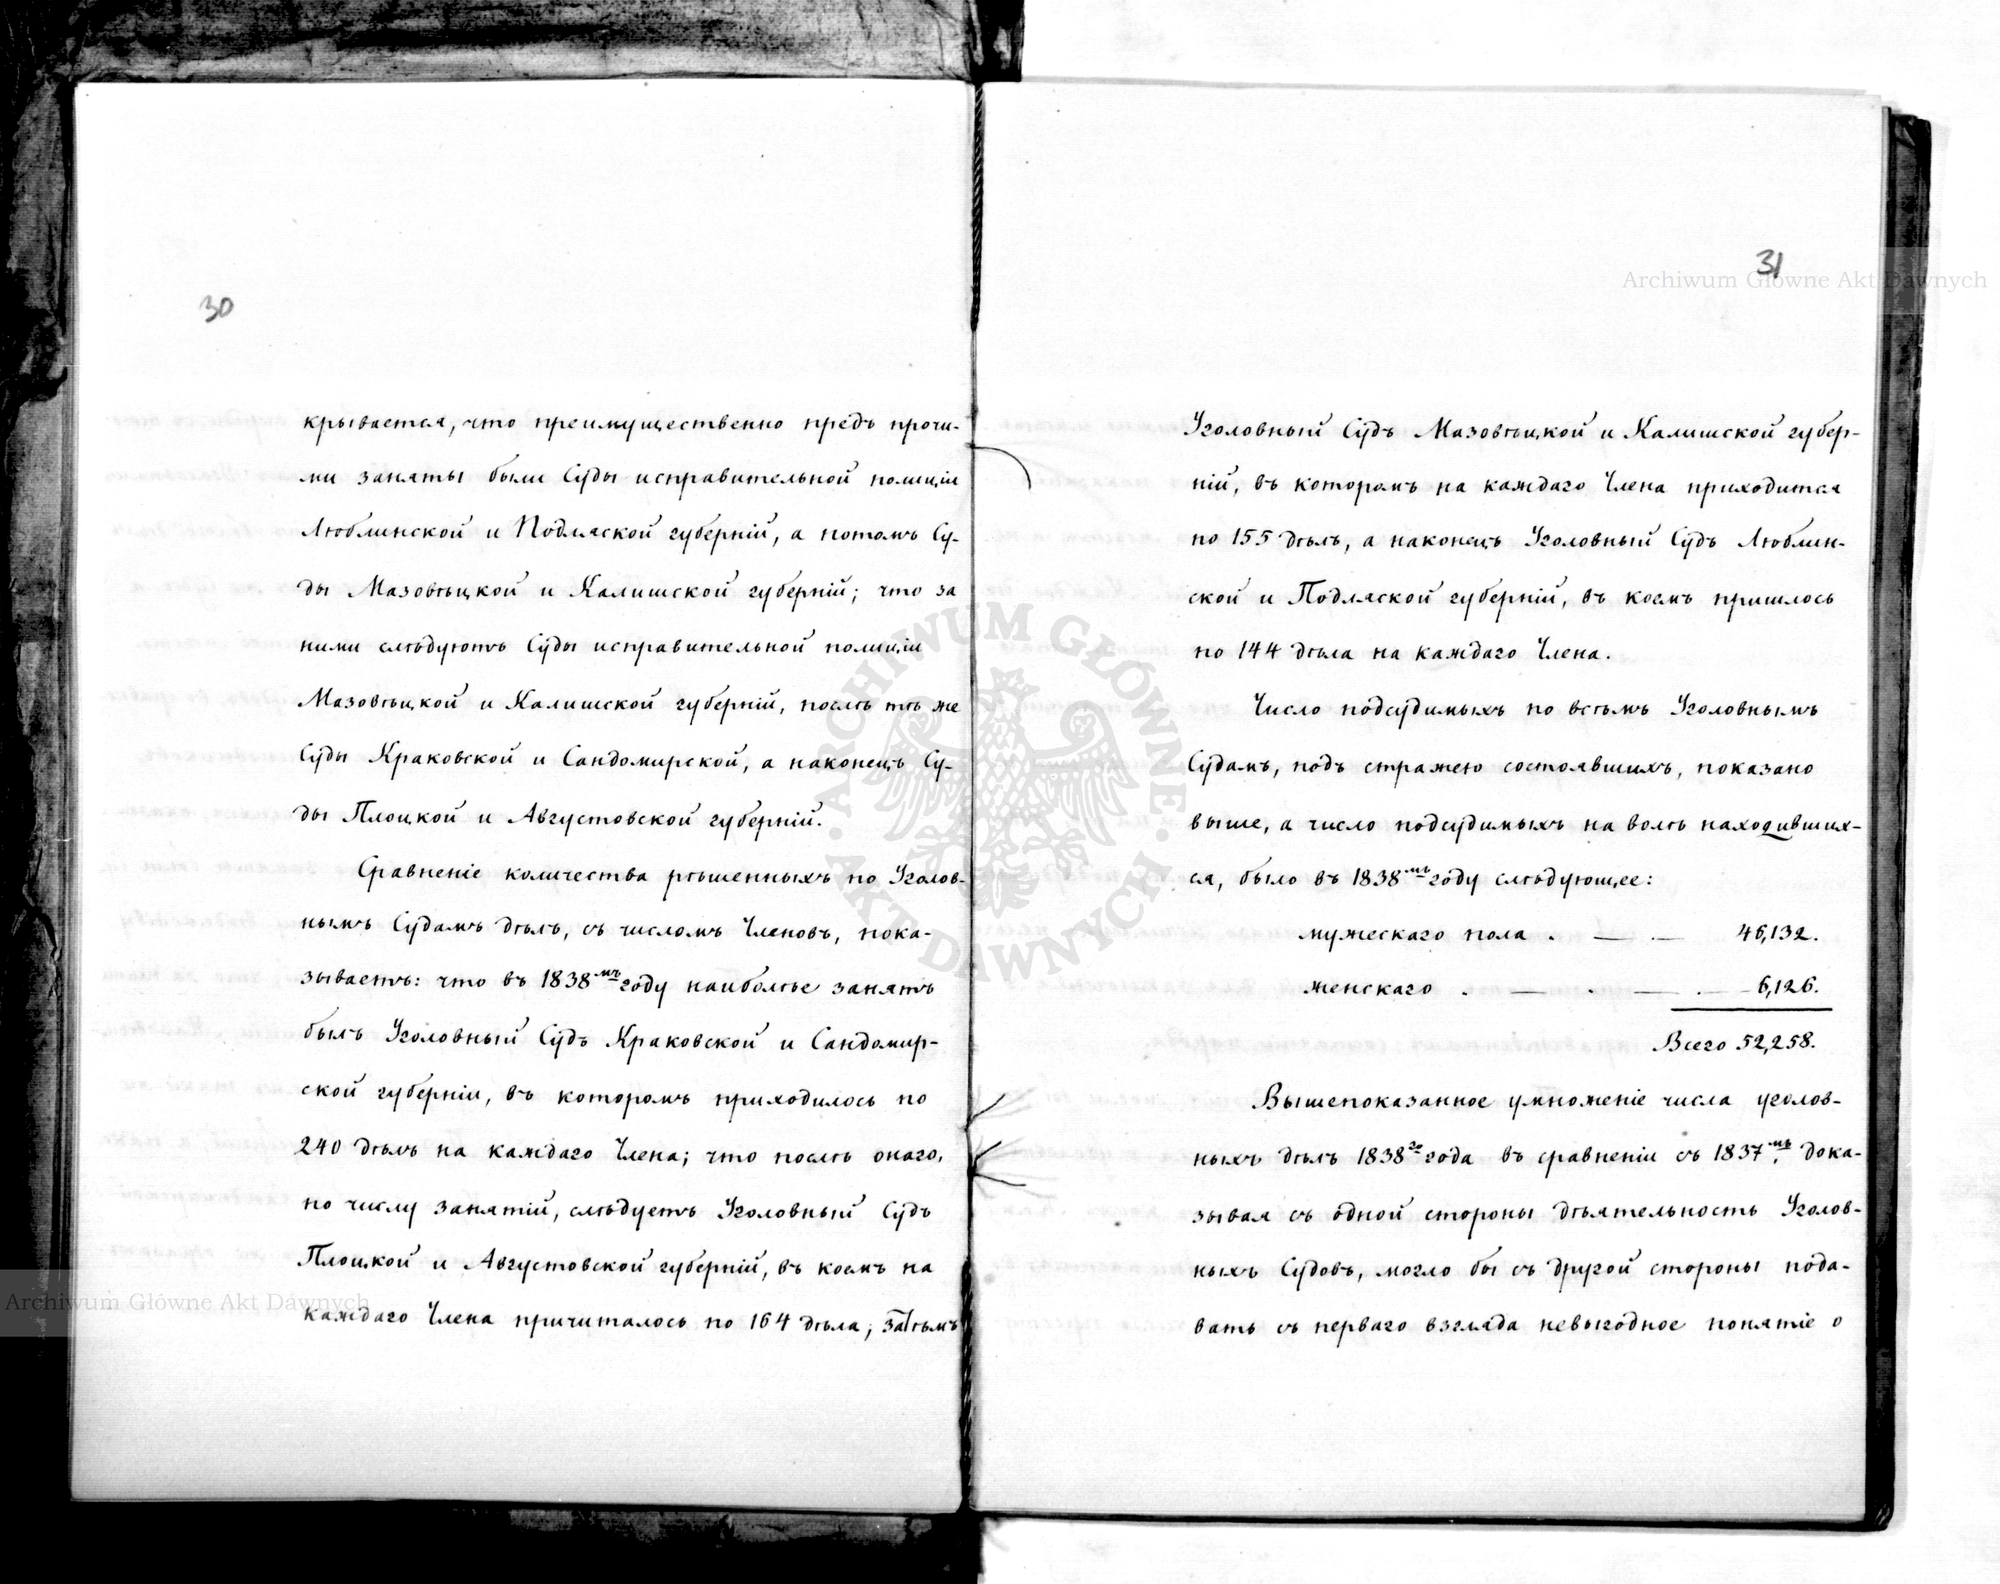 30
крывается, что преимущественно предъ прочи-
ми заняты были Суды исправительной полиціи
Люблинской и Подляской губерній, а потомъ Су-
ды Мазовѣцкой и Калишской губерній; что за
ними слѣдуютъ Суды исправительной полиціи
Мазовѣцкой и Калишской губерній, послѣ тѣ же
Суды Краковской и Сандомирской, а наконецъ Су-
ды Плоцкой и Августовской губерній.
Сравненіе количества рѣшенныхъ по Уголов-
нымъ Судамъ дѣлъ, съ числомъ Членовъ, пока-
зываетъ: что въ 1838мъ году наиболѣе занятъ
былъ Уголовный Судъ Краковской и Сандомир-
ской губерніи, въ которомъ приходилось по
240 дѣлъ на каждаго Члена; что послѣ онаго,
по числу занятій, слѣдуетъ Уголовный Судъ
Плоцкой и Августовской губерній, въ коемъ на
каждаго Члена причиталось по 164 дѣла; затѣмъ
31
Уголовный Судъ Мазовѣцкой и Калишской губер-
ній, въ которомъ на каждаго Члена приходится
по 155 дѣлъ, а наконецъ Уголовный Судъ Люблин-
ской и Подляской губерній, въ коемъ пришлось
по 144 дѣла на каждаго Члена.
Число подсудимыхъ по всѣмъ Уголовнымъ
Судамъ, подъ стражею состоявшихъ, показано
выше, а число подсудимыхъ на волѣ находивших-
ся, было въ 1838мъ году слѣдующее:
мужескаго пола . — — 46,132.
женскаго . — . — . — 6,126.
Всего 52,258.
Вышепоказанное умноженіе числа уголов-
ныхъ дѣлъ 1838го года въ сравненіи съ 1837мъ, дока-
зывая съ одной стороны дѣятельность Уголов-
ныхъ Судовъ, могло бы съ другой стороны пода-
вать съ перваго взгляда невыгодное понятіе о
Archiwum Główne Akt Dawnych
Archiwum Główne Akt Dawnych
ARCHIWUM GŁÓWNE · AKT DAWNYCH ·